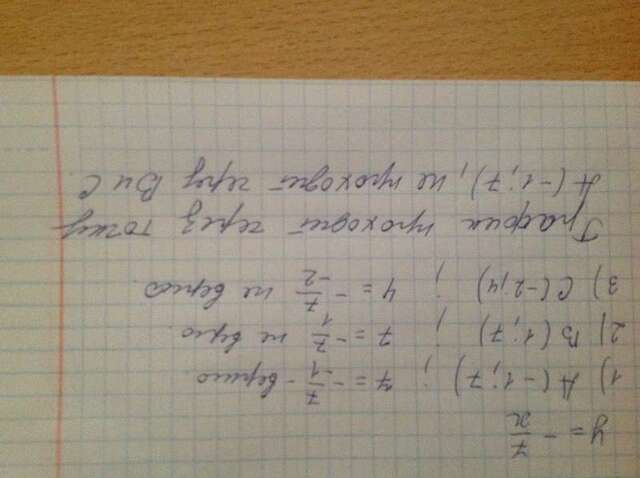 y = - 7/x
1) A(-1; 7) ; 7 = - 7/-1 - верно.
2) B(1; 7) ; 7 = - 7/1 не верно.
3) C(-2; 4) ; 4 = - 7/-2 не верно.
График проходит через точку
A(-1; 7), не проходит через B и C.